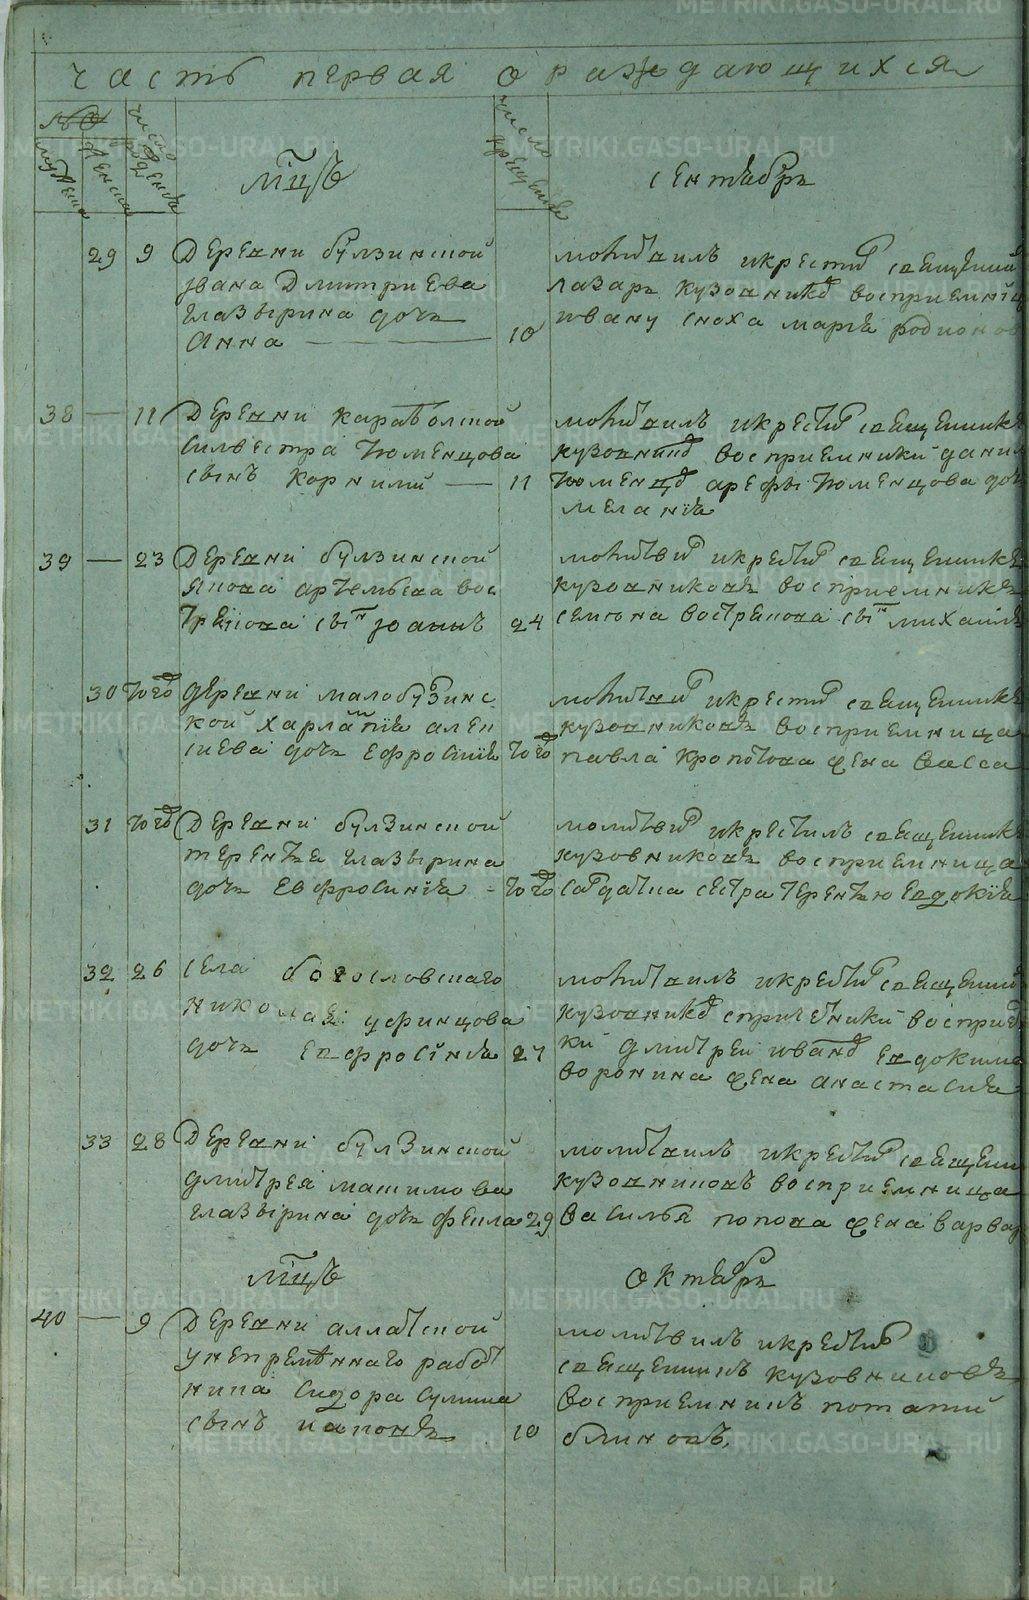 часть первая о раждающихся
№
мужеска
женска
число рождения
мцъ
число крещения
сентябрь
29 9 Деревни булзинской
Ивана Дмитриева
глазырина дочь
Анна 10
молитвилъ и крестилъ священник
лазарь кузовниковъ восприемница
ивану сноха марья родионов
38 — 11 Деревни каработской
Силвестра тюменцова
сынъ корнилий — 11
молитвилъ и крестилъ священникъ
кузовниковъ восприемники данил
тюменцовъ арефы тюменцова дочь
мелания
39 — 23 Деревни булзинской
якова артемьева вос
трикова сынъ иоаннъ 24
молитвилъ и крестилъ священникъ
кузовниковъ восприемникъ
семиона вострикова сынъ михаилъ
30 того деревни малобулзинс
кой харлампия алек
сиева дочь ефросиния того
молитвилъ и крестилъ священникъ
кузовниковъ восприемница
павла кропотова жена васса
31 того Деревни булзинской
терентья глазырина
дочь Евфросиния - того
молитвилъ и крестилъ священникъ
кузовниковъ восприемница
салдатка сестра терентью евдокия
32 26 села богословскаго
николая уфинцова
дочь евфросиния 27
молитвилъ и крестилъ священник
кузовниковъ с причетники восприемни
ки дмитрей ивановъ евдокима
воронина жена анастасия
33 28 Деревни булзинской
дмитрея макимова
глазырина дочь фекла 29
молитвилъ и крестилъ священ
кузовниковъ восприемница
василья попова жена варвар
мцъ
октябрь
40 — 9 Деревни аллатской
у непременнаго работ
ника сидора сулима
сынъ иаковъ 10
молитвилъ и крестилъ
священникъ кузовниковъ
восприемникъ потапий
блиновъ.
METRIKI.GASO-URAL.RU